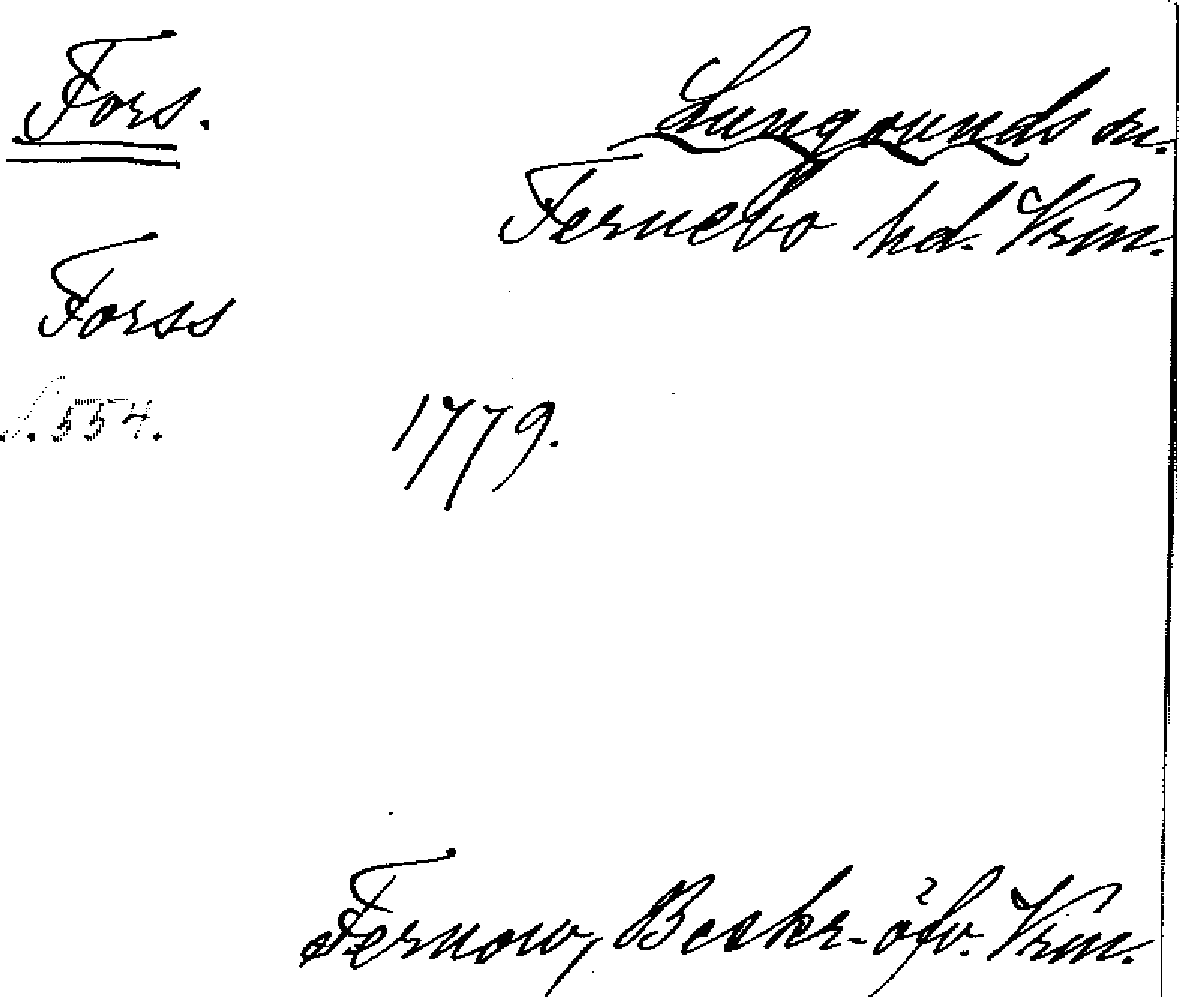 Fors.
Lungsunds sn.
Fernebo hd. Vrm.
Forss
S. 554.
1779.
Fernow, Beskr. öfv. Vrm.